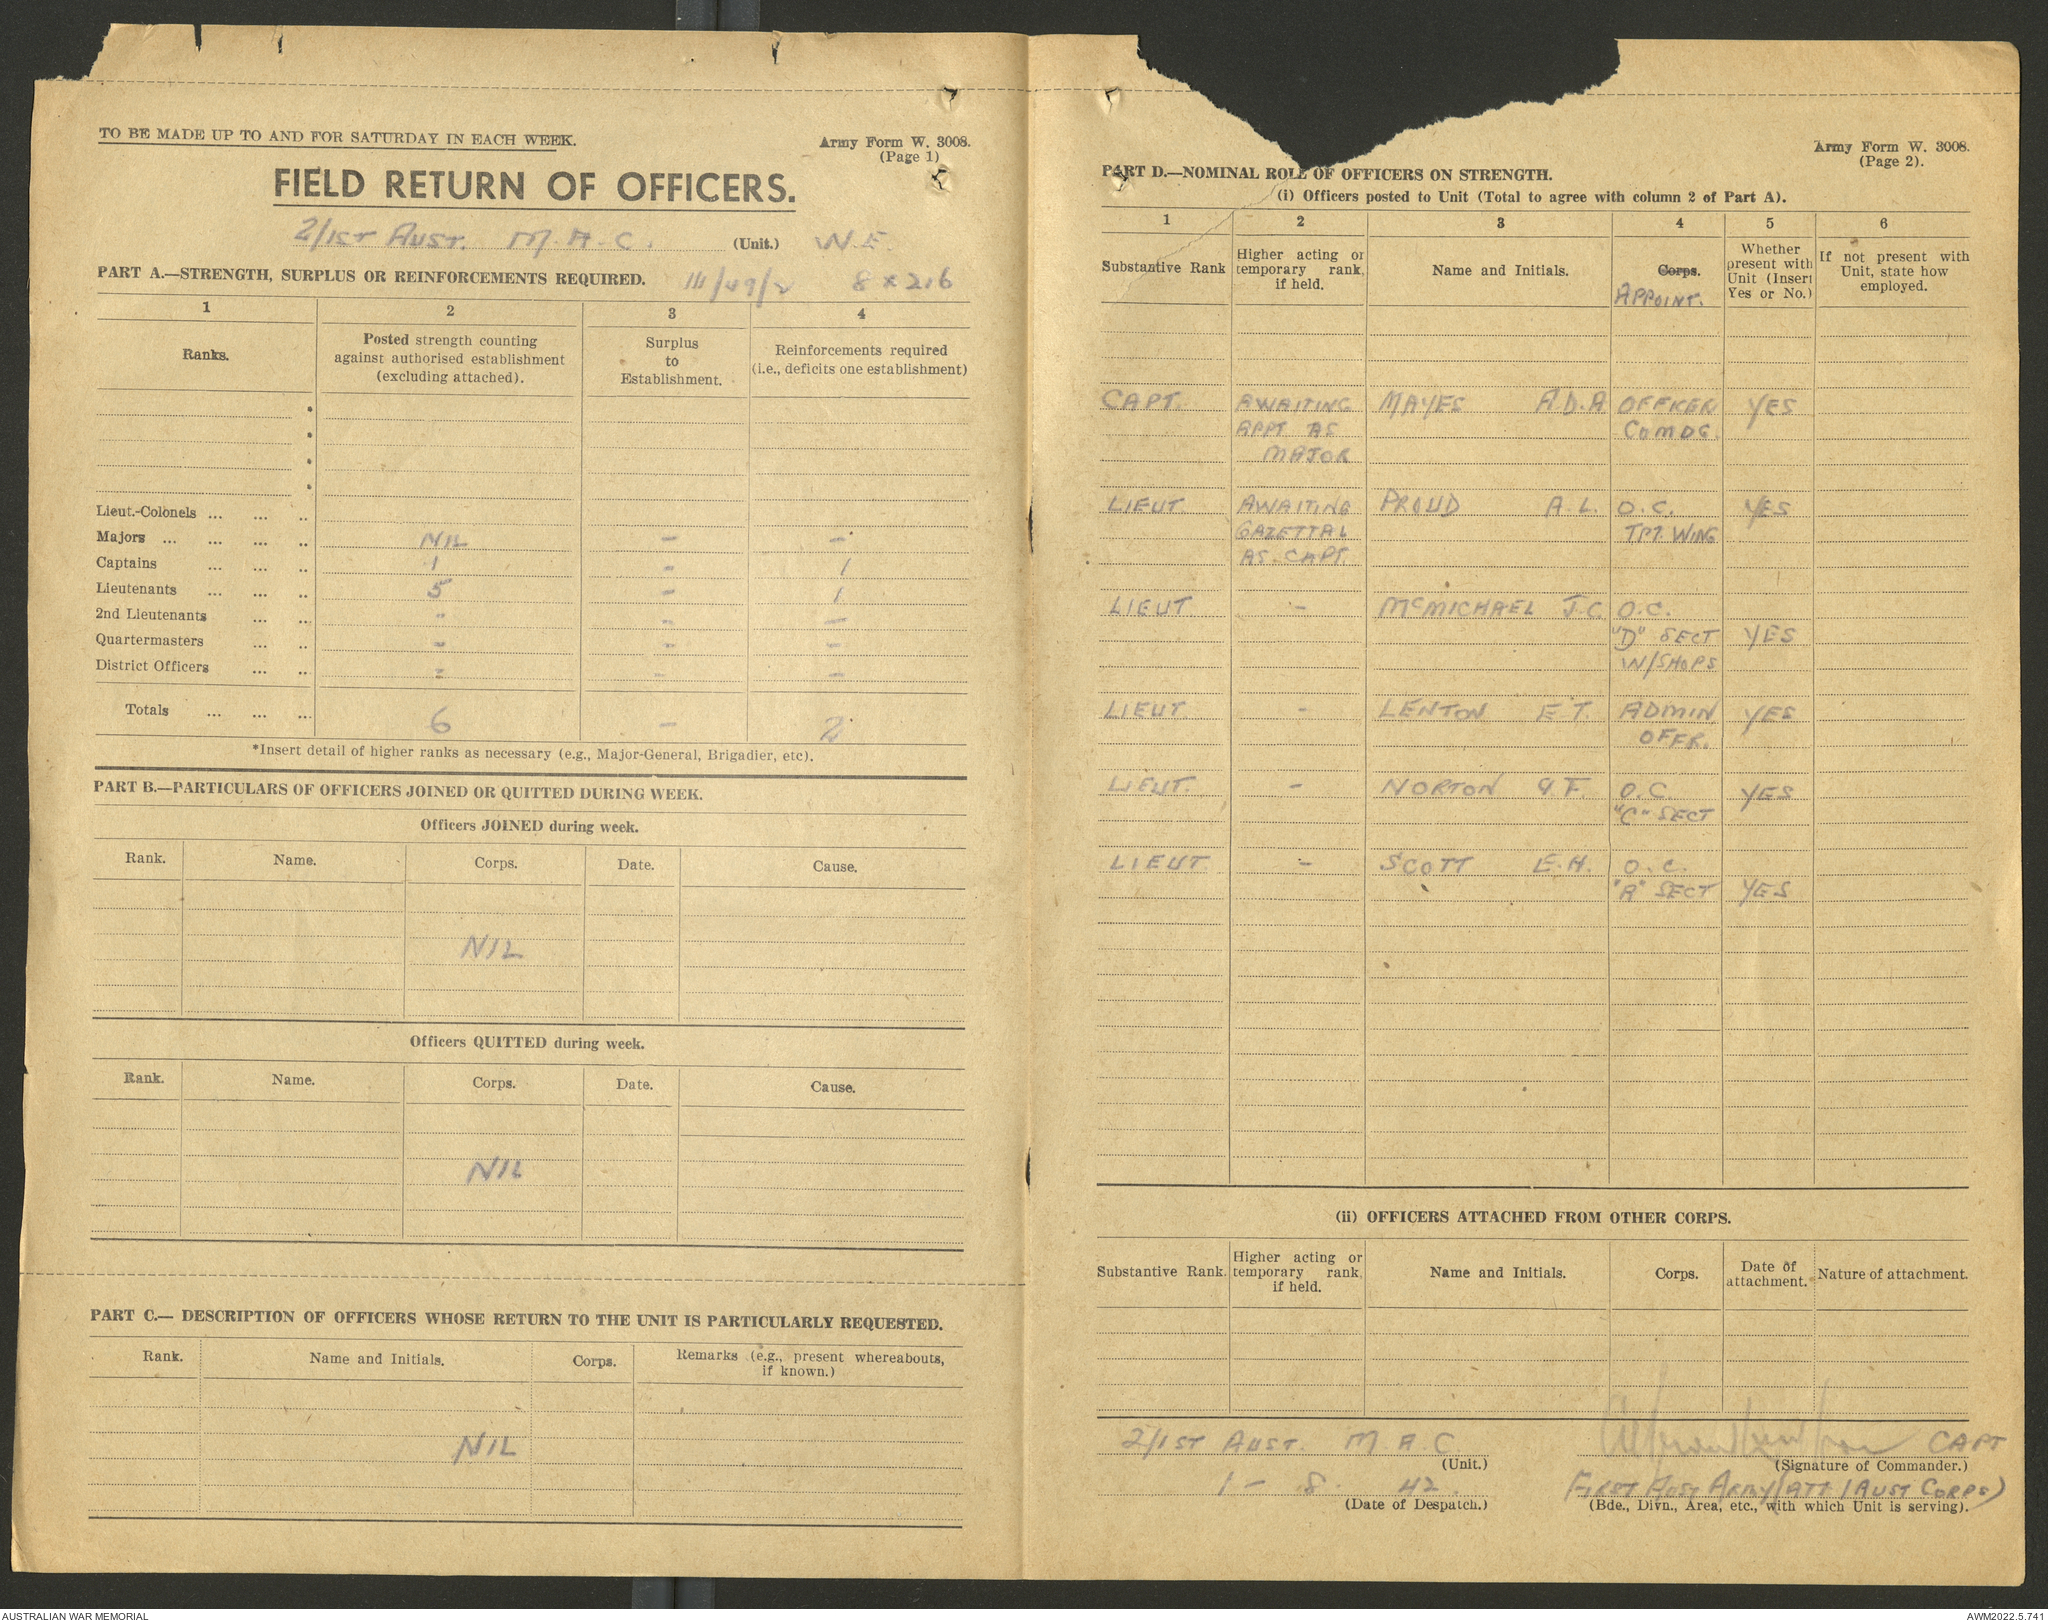 TO BE MADE UP TO AND FOR SATURDAY IN EACH WEEK.
Army Form W. 3008.
(Page 1)
FIELD RETURN OF OFFICERS.
2/1ST AUST. M.A.C. (Unit.) W.E.
PART A.—STRENGTH, SURPLUS OR REINFORCEMENTS REQUIRED. III/49/2 8 x 216
1 2 3 4
Ranks.
Posted strength counting
against authorised establishment
(excluding attached).
Surplus
to
Establishment.
Reinforcements required
(i.e., deficits one establishment)
*
*
*
*
Lieut.-Colonels ... ... ..
Majors ... ... ... .. NIL - -
Captains ... ... .. 1 - 1
Lieutenants ... ... .. 5 - 1
2nd Lieutenants ... .. - - -
Quartermasters ... .. - - -
District Officers ... .. - - -
Totals ... ... ... 6 - 2
*Insert detail of higher ranks as necessary (e.g., Major-General, Brigadier, etc).
PART B.—PARTICULARS OF OFFICERS JOINED OR QUITTED DURING WEEK.
Officers JOINED during week.
Rank. Name. Corps. Date. Cause.
NIL
Officers QUITTED during week.
Rank. Name. Corps. Date. Cause.
NIL
PART C.— DESCRIPTION OF OFFICERS WHOSE RETURN TO THE UNIT IS PARTICULARLY REQUESTED.
Rank. Name and Initials. Corps. Remarks (e.g., present whereabouts,
if known.)
NIL
Army Form W. 3008.
(Page 2).
PART D.—NOMINAL ROLE OF OFFICERS ON STRENGTH.
(i) Officers posted to Unit (Total to agree with column 2 of Part A).
1 2 3 4 5 6
Substantive Rank
Higher acting or
temporary rank,
if held.
Name and Initials.
Corps.
APPOINT.
Whether
present with
Unit (Insert
Yes or No.)
If not present with
Unit, state how
employed.
CAPT. AWAITING MAYES A.D.A OFFICER YES
APPT AS COMDG.
MAJOR
LIEUT AWAITING PROUD A.L. O.C. YES
GAZETTAL TPT. WING
AS. CAPT.
LIEUT - McMICHAEL J.C. O.C.
"D" SECT YES
W/SHOPS
LIEUT. - LENTON E T. ADMIN YES
OFFR.
LIEUT. - NORTON G F. O.C. YES
"C" SECT
LIEUT. - SCOTT E.H. O.C.
"A" SECT YES
(ii) OFFICERS ATTACHED FROM OTHER CORPS.
Substantive Rank.
Higher acting or
temporary rank,
if held.
Name and Initials.
Corps.
Date of
attachment.
Nature of attachment.
2/1ST AUST. M A C. CAPT
(Unit.) (Signature of Commander.)
1 - 8. 42. FIRST AUST ARMY (ATT 1 AUST CORPS)
(Date of Despatch.) (Bde., Divn., Area, etc., with which Unit is serving).
AUSTRALIAN WAR MEMORIAL AWM2022.5.741